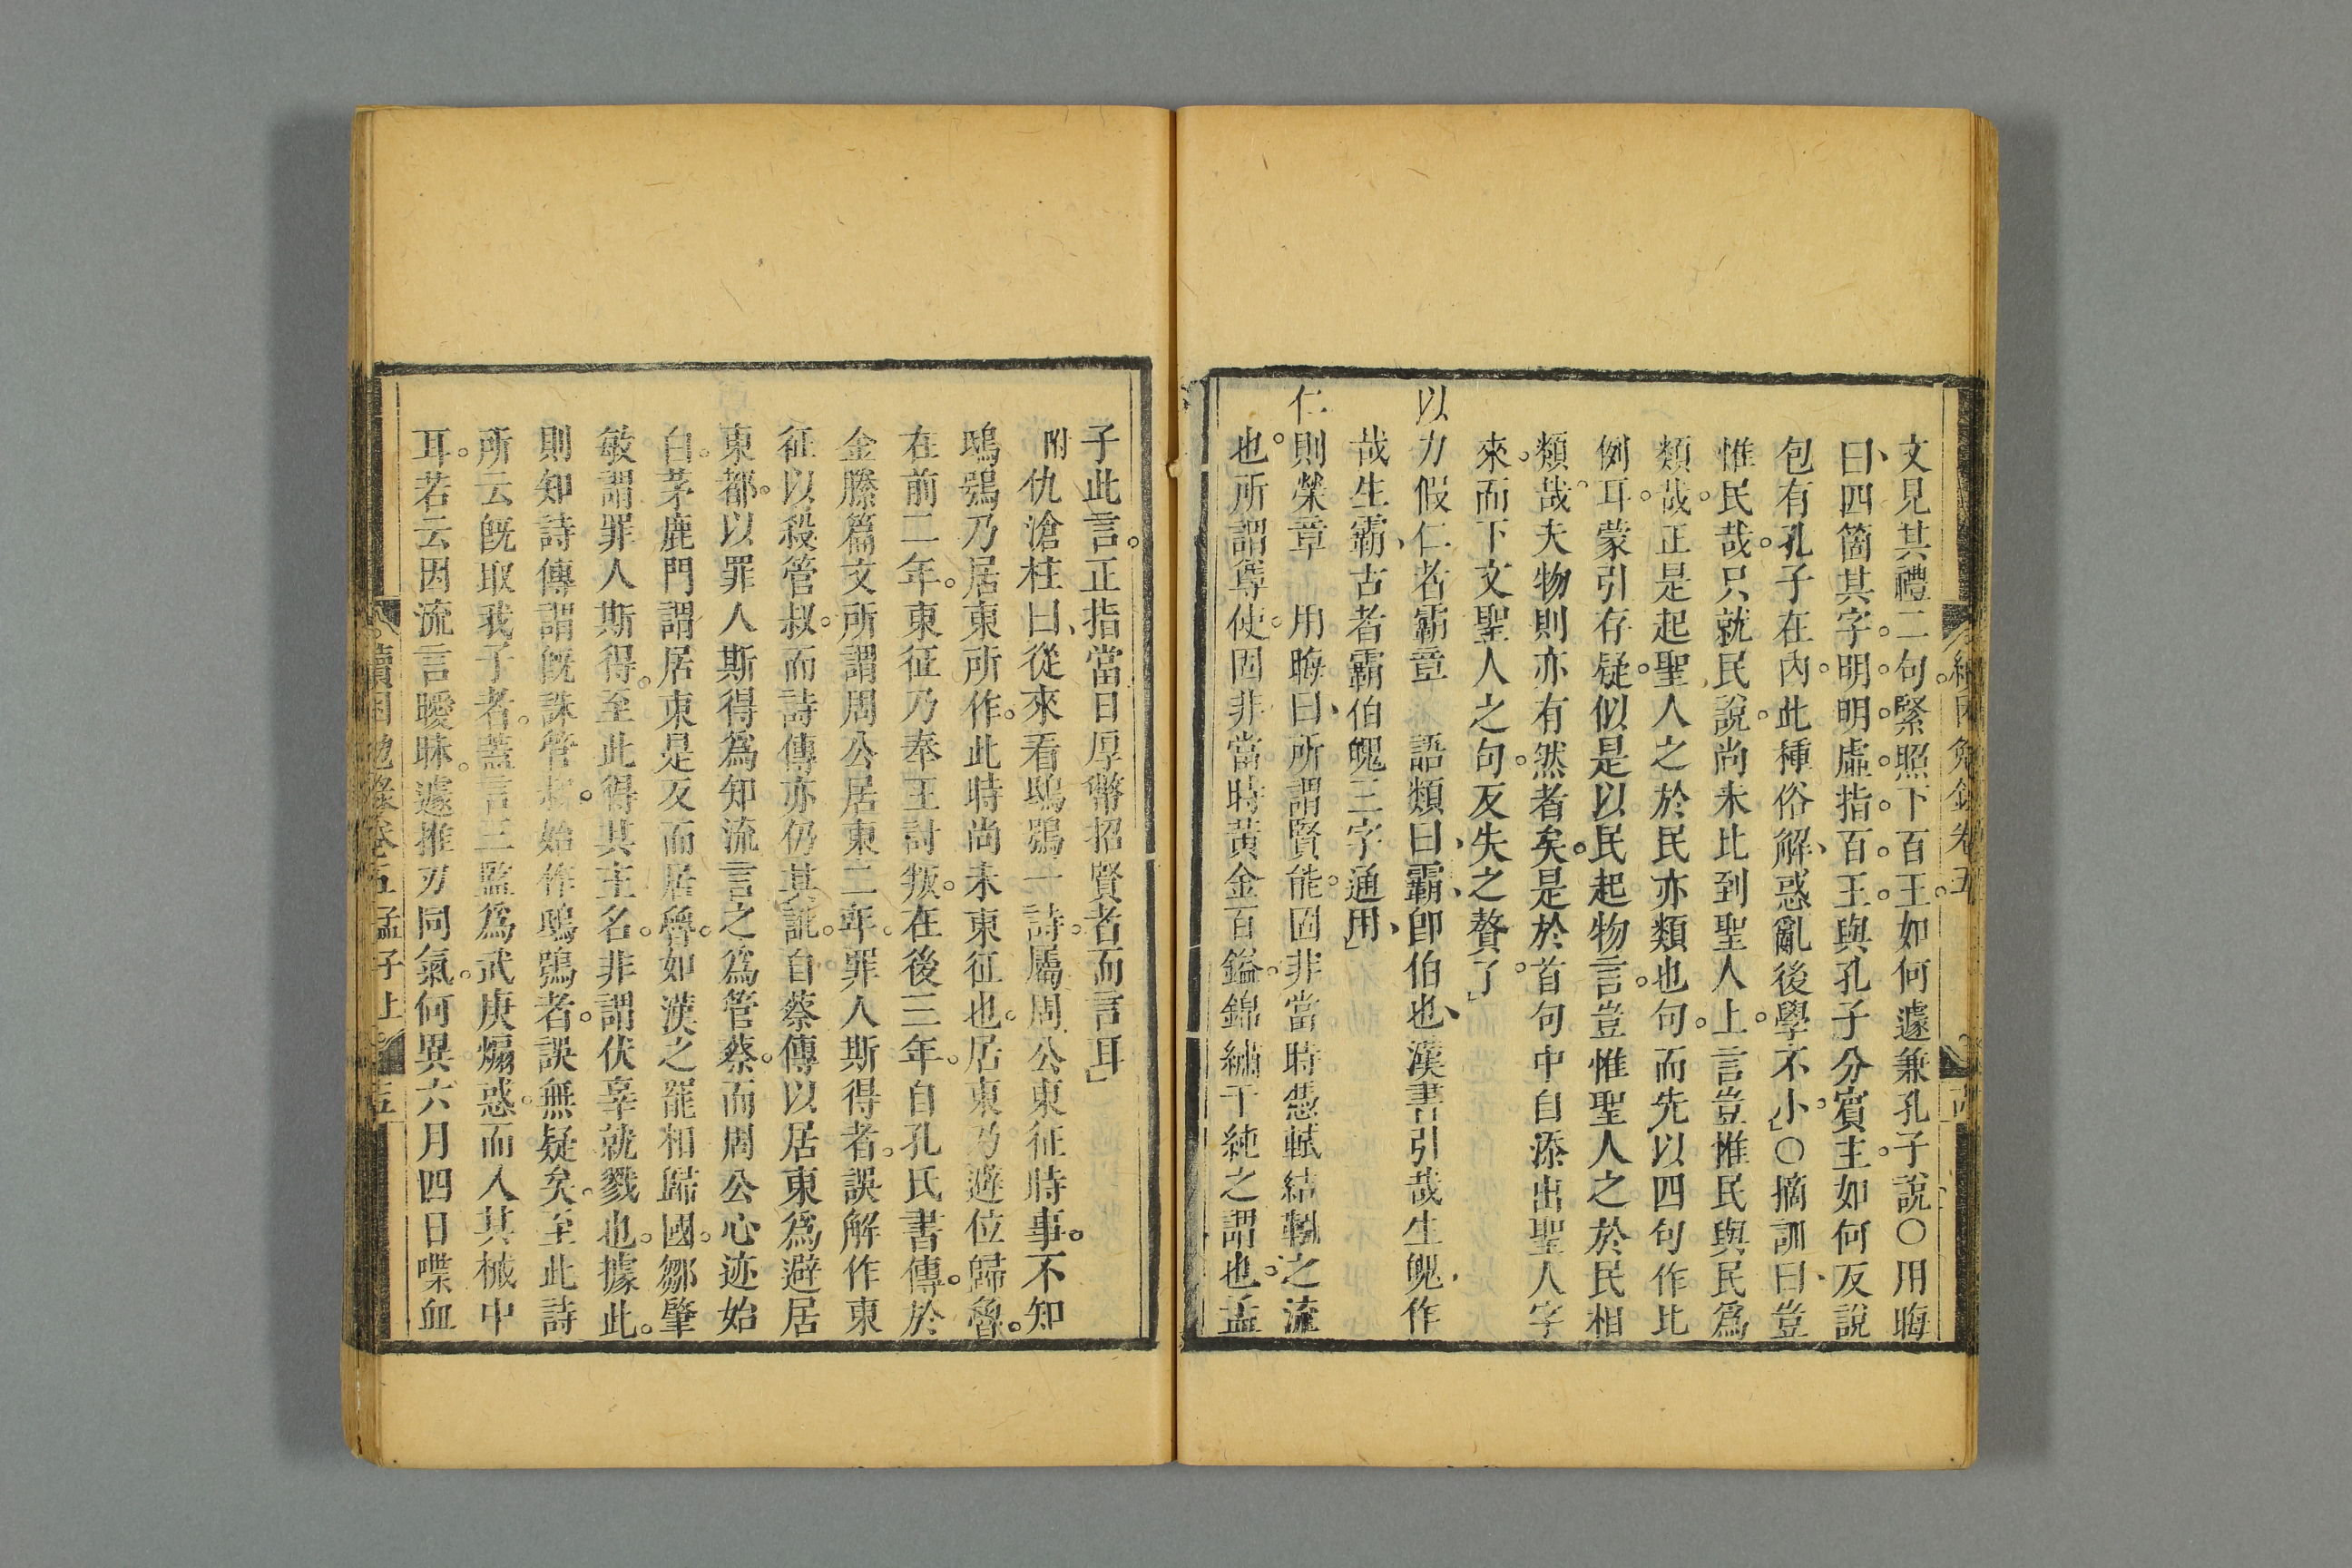 文見其禮二句緊照下百王如何遽兼孔子說○用晦
曰四箇其字明明虛指百王與孔子分賓主如何反說
包有孔子在內此種俗解惑亂後學不小○摘訓曰豈
惟民哉只就民說尚未比到聖人上言豈惟民與民爲
類哉正是起聖人之於民亦類也句而先以四句作比
例耳蒙引存疑似是以民起物言豈惟聖人之於民相
類哉夫物則亦有然者矣是於首句中自添出聖人字
來而下文聖人之句反失之贅了
以力假仁者霸章 語類曰霸卽伯也漢書引哉生魄作
哉生霸古者霸伯魄三字通用
仁則榮章 用晦曰所謂賢能固非當時憑軾結靷之流
也所謂尊使固非當時黃金百鎰錦繡千純之謂也孟
子此言正指當日厚幣招賢者而言耳
附仇滄柱曰從來看鴟鴞一詩屬周公東征時事不知
鴟鴞乃居東所作此時尚未東征也居東乃避位歸魯
在前二年東征乃奉王討叛在後三年自孔氏書傳於
金縢篇文所謂周公居東二年罪人斯得者誤解作東
征以殺管叔而詩傳亦仍其訛自蔡傳以居東爲避居
東都以罪人斯得爲知流言之爲管蔡而周公心迹始
白茅鹿門謂居東是反而居魯如漢之罷相歸國鄒肇
敏謂罪人斯得至此得其主名非謂伏辜就戮也據此
則知詩傳謂旣誅管叔始作鴟鴞者誤無疑矣至此詩
所云旣取我子者蓋言三監爲武庚煽惑而入其械中
耳若云因流言曖昧遽推刃同氣何異六月四日喋血
續困勉錄卷五 孟子上